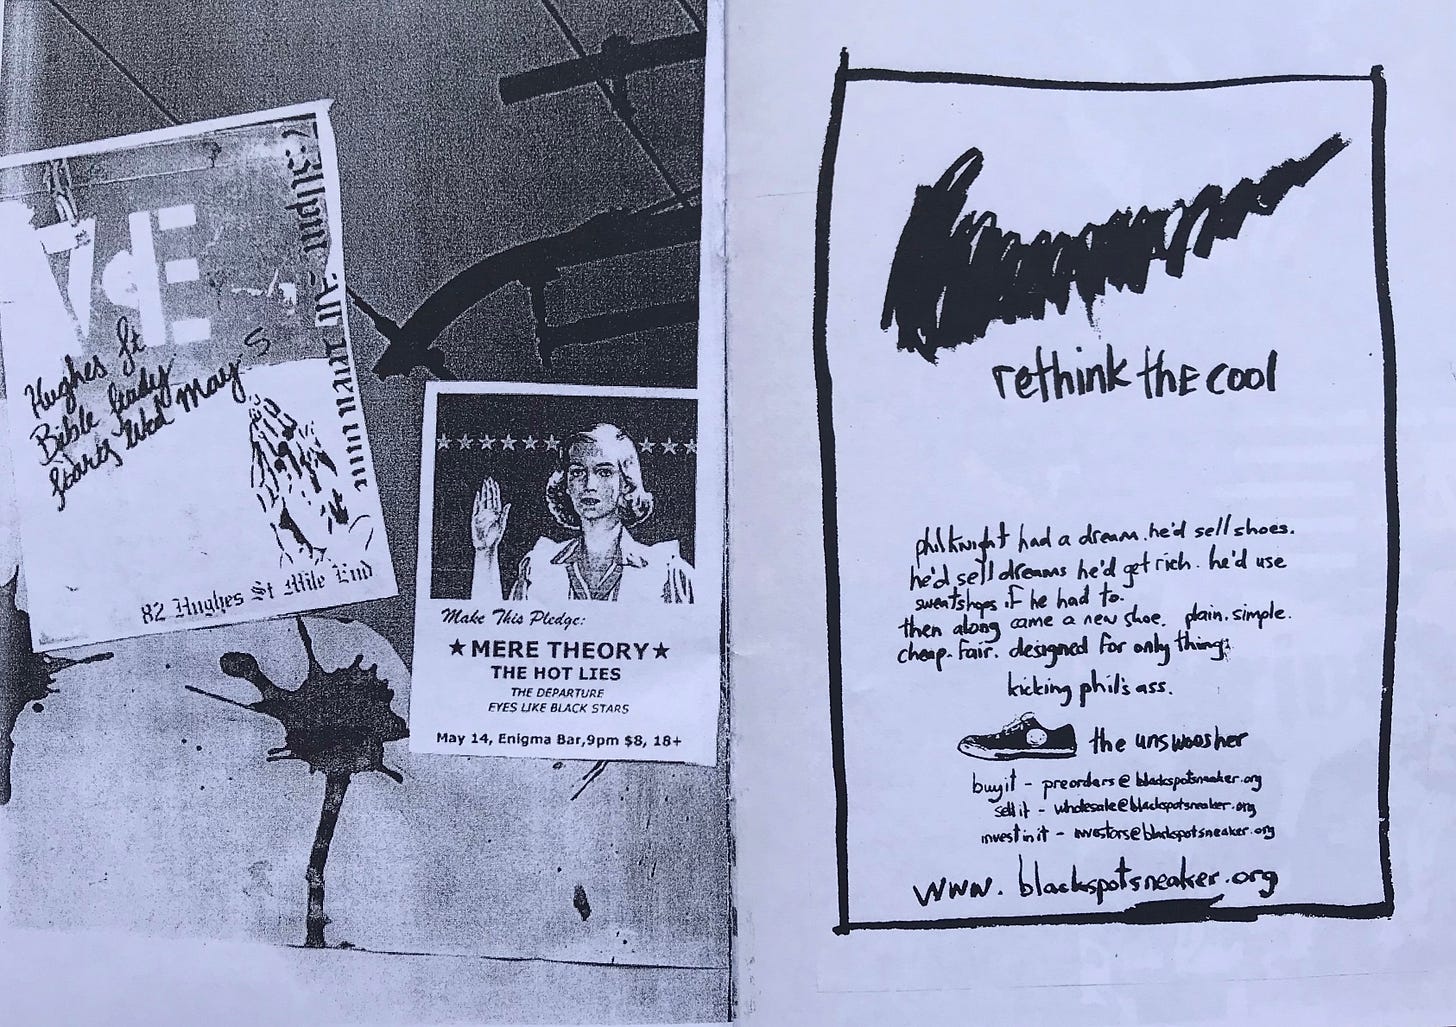 VdE
Hughes St
Bible Study
starts Wed May 5
82 Hughes St Mile End
Make This Pledge:
★MERE THEORY★
THE HOT LIES
THE DEPARTURE
EYES LIKE BLACK STARS
May 14, Enigma Bar,9pm $8, 18+
rethink the cool
phil knight had a dream. he'd sell shoes.
he'd sell dreams he'd get rich. he'd use
sweatshops if he had to.
then along came a new shoe. plain. simple.
cheap. fair. designed for only thing:
kicking phil's ass.
the unswoosher
buy it - preorders@blackspotsneaker.org
sell it - wholesale@blackspotsneaker.org
invest in it - investors@blackspotsneaker.org
www.blackspotsneaker.org